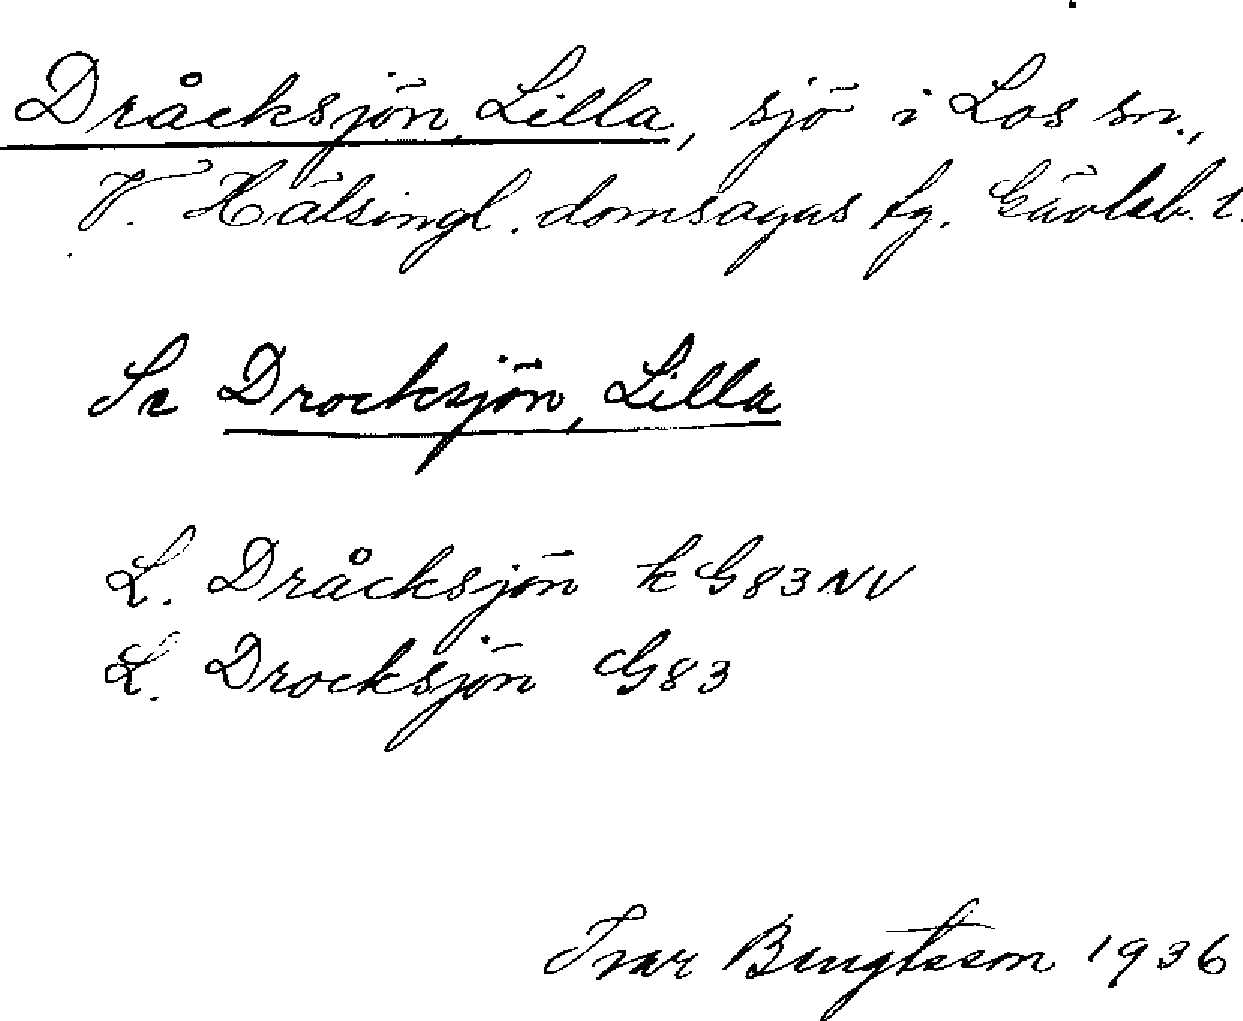 Dråcksjön, Lilla, sjö i Los sn.,
V. Hälsingl. domsagas tg. Gävleb. l.
Se Drocksjön, Lilla
L. Dråcksjön k G83NV
L. Drocksjön G83
Ivar Bengtsson 1936